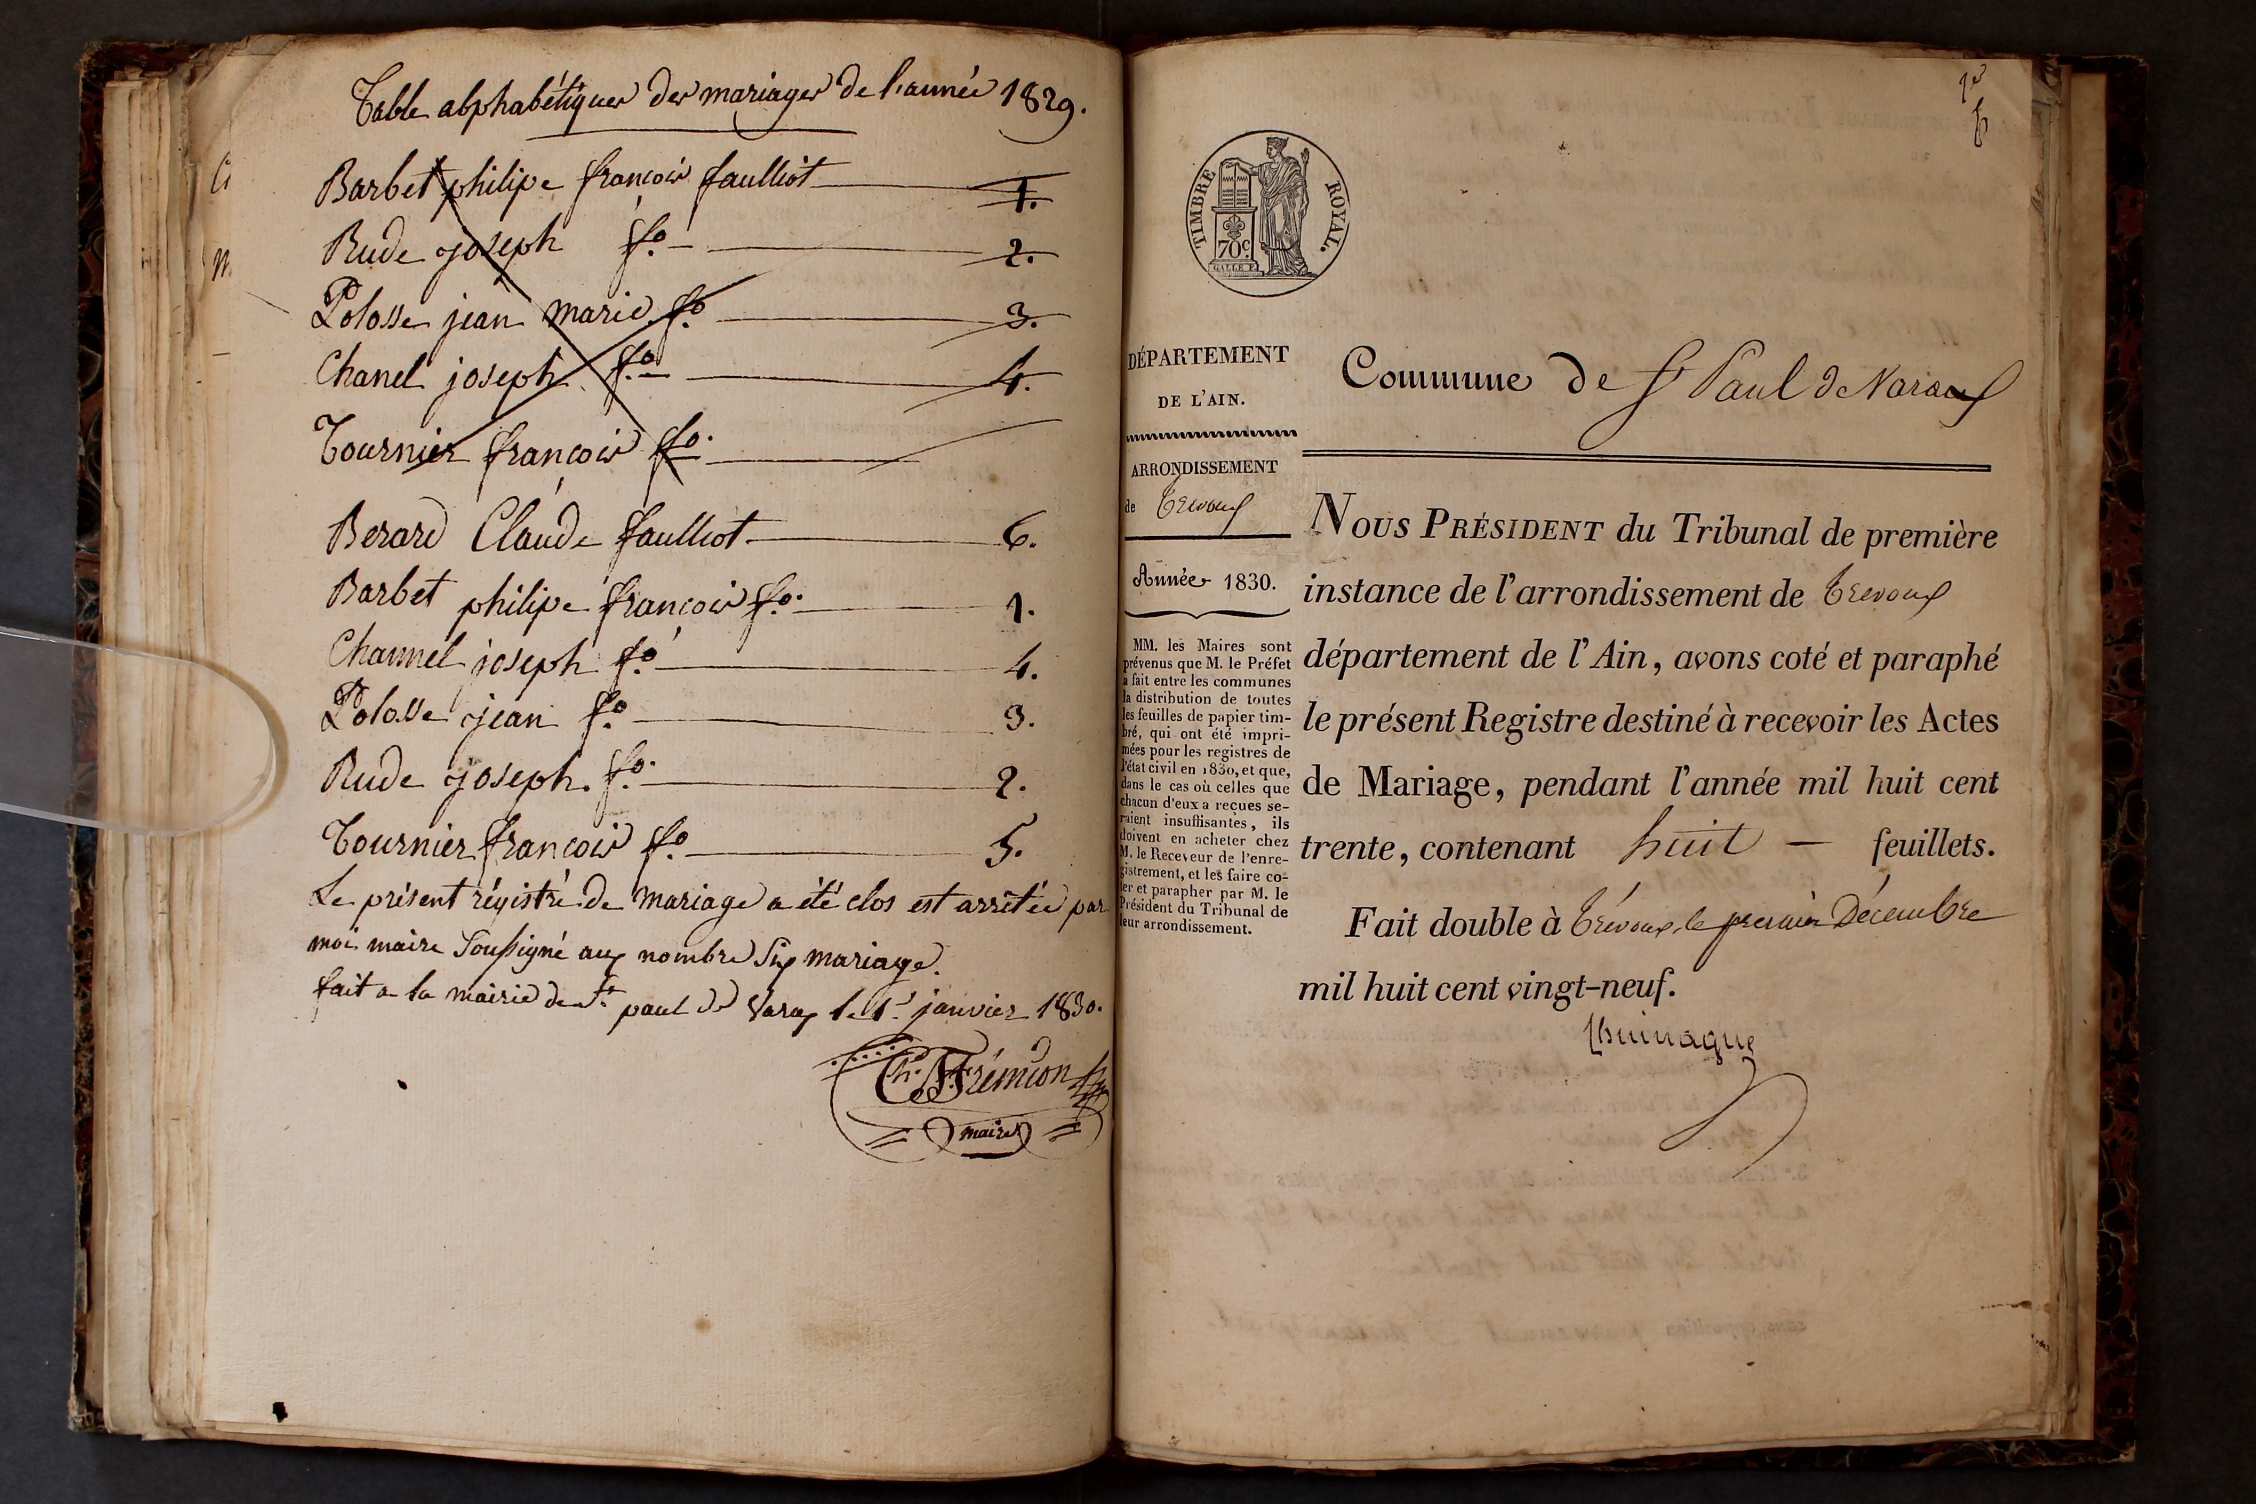 Table alphabétiques des mariages de l'année 1829.
Barbet philipe françois faulliot 1.
Rude joseph fo. 2.
Polosse jean marie fo. 3.
Chanel joseph fo. 4.
Tournier françois fo.
Berard Claude faulliot 6.
Barbet philipe françois fo. 1.
Channel joseph fo. 4.
Polosse jean fo. 3.
Rude joseph. fo. 2.
Tournier françois fo. 5.
Le présent régistré de mariage a été clos est arrêtée par
moi maire Soussigné aux nombre Six mariage.
fait a la mairie de St. paul de Varax le 1r janvier 1830.
Frémion
maire
1er
TIMBRE ROYAL.
70c.
GALLE F.
DÉPARTEMENT
DE L'AIN.
ARRONDISSEMENT
de Trevoux
Année 1830.
MM. les Maires sont
prévenus que M. le Préfet
a fait entre les communes
la distribution de toutes
les feuilles de papier tim-
bré, qui ont été impri-
mées pour les registres de
l'état civil en 1830, et que,
dans le cas où celles que
chacun d'eux a reçues se-
raient insuffisantes, ils
doivent en acheter chez
M. le Receveur de l'enre-
gistrement, et les faire co-
ter et parapher par M. le
Président du Tribunal de
leur arrondissement.
Commune de St Paul de Varax
NOUS PRÉSIDENT du Tribunal de première
instance de l'arrondissement de Trevoux
département de l'Ain, avons coté et paraphé
le présent Registre destiné à recevoir les Actes
de Mariage, pendant l'année mil huit cent
trente, contenant huit — feuillets.
Fait double à Trévoux, le premier Décembre
mil huit cent vingt-neuf.